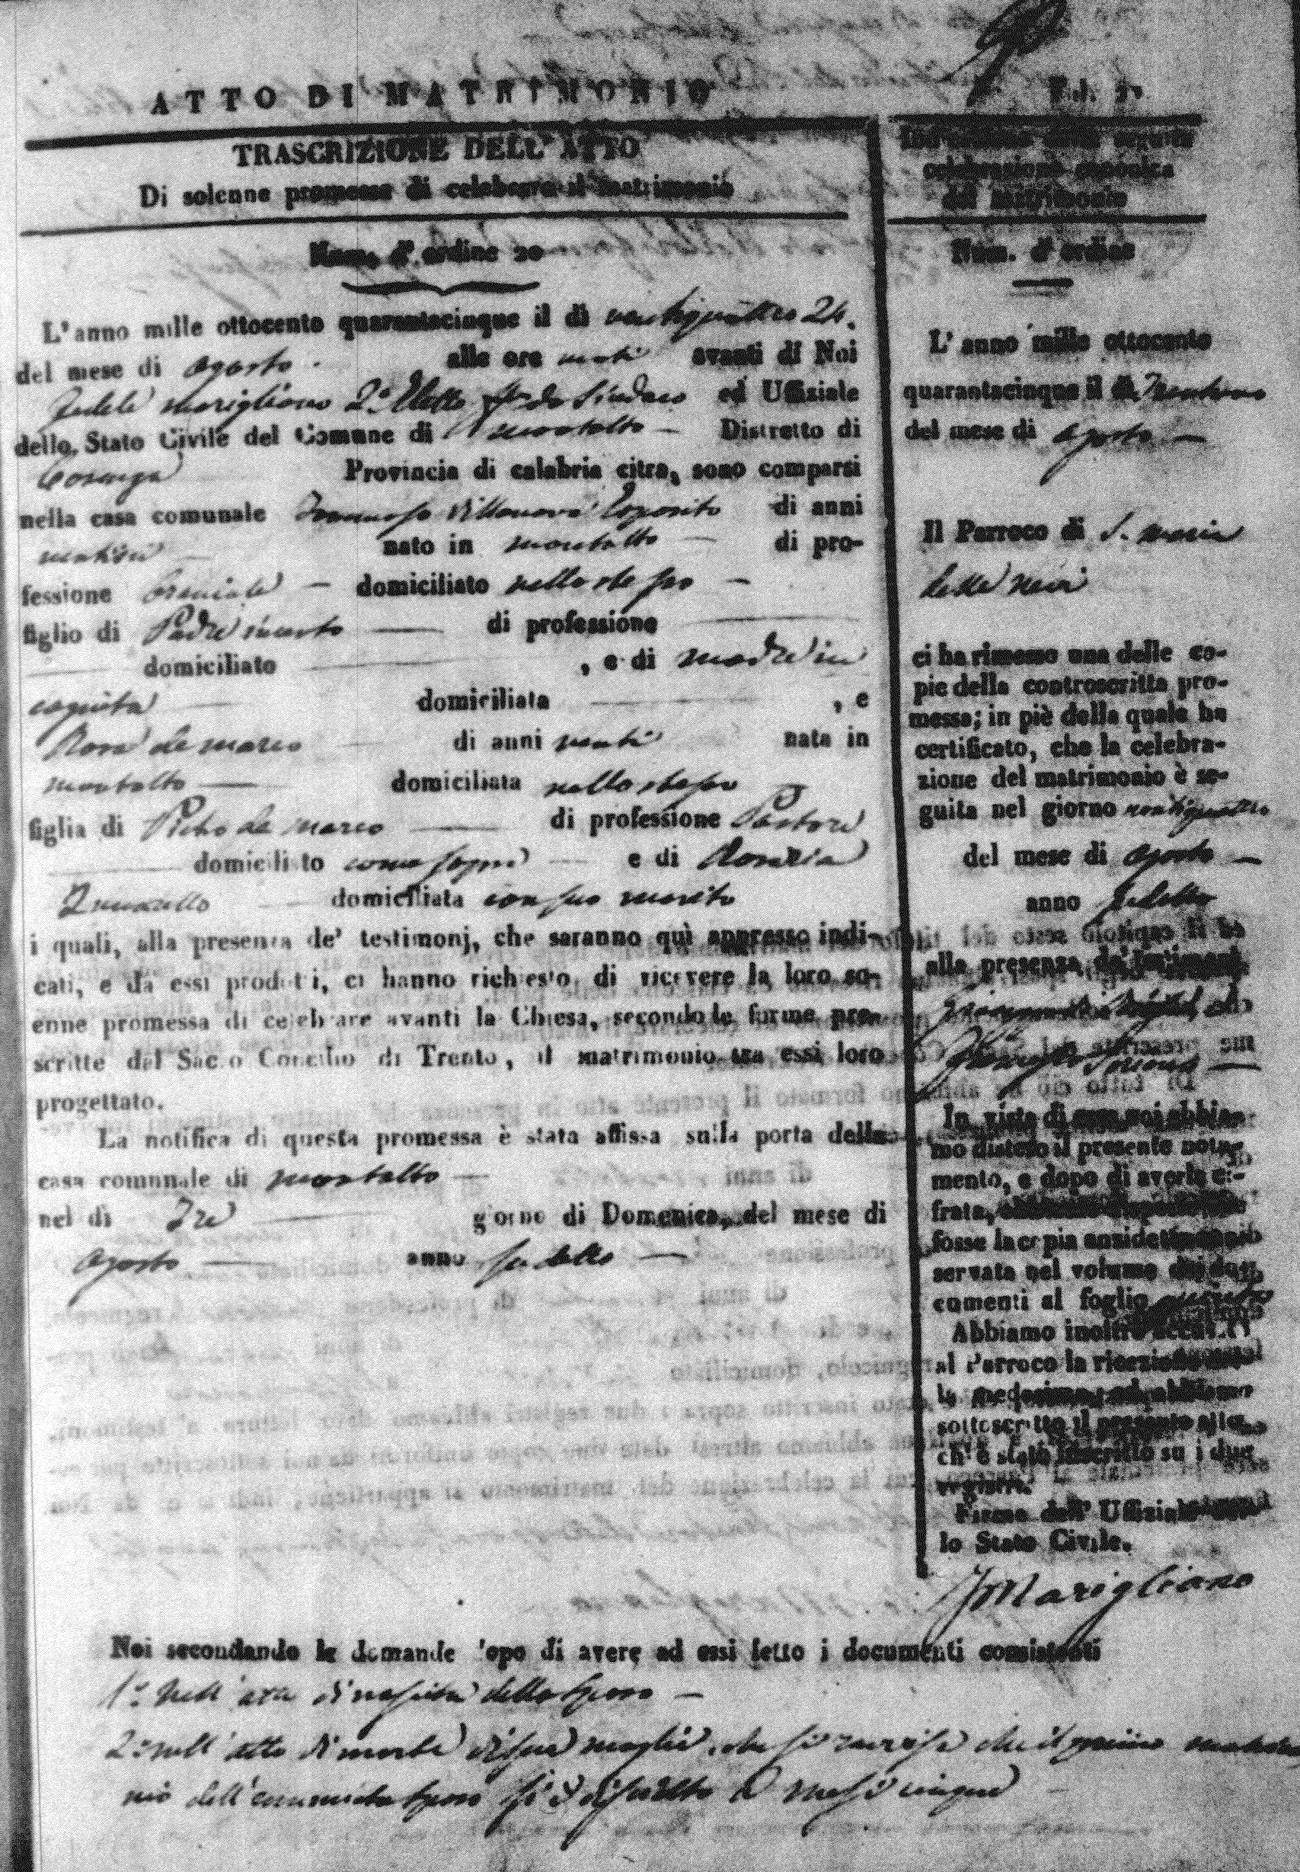 ATTO DI MATRIMONIO
TRASCRIZIONE DELL' ATTO
Di solenne promessa di celebrare il matrimonio
Num. d'ordine 20
L'anno mille ottocento quarantacinque il dì ventiquattro 24.
del mese di agosto. alle ore venti avanti di Noi
Fedele Marigliano 2° Eletto ff. da Sindaco ed Uffiziale
dello Stato Civile del Comune di Montalto — Distretto di
Cosenza Provincia di calabria citra, sono comparsi
nella casa comunale Villanova Esposito di anni
nato in Montalto — di pro-
fessione — domiciliato nello stesso —
figlio di Padre incerto — di professione —
— domiciliato — , e di madre in
cognita — domiciliata — , e
Rosa de Marco — di anni venti nata in
Montalto — domiciliata nello stesso
figlia di Pietro de Marco — di professione Pastore
— domiciliato come sopra — e di Rosaria
— domiciliata con suo marito
i quali, alla presenza de' testimonj, che saranno quì appresso indi-
cati, e da essi prodotti, ci hanno richiesto di ricevere la loro so-
enne promessa di celebrare avanti la Chiesa, secondo le forme pre-
scritte dal Sacro Concilio di Trento, il matrimonio tra essi loro
progettato.
La notifica di questa promessa è stata affissa sulla porta della
casa comunale di Montalto —
nel dì Tre — giorno di Domenica, del mese di
agosto — anno sudetto —
Noi secondando le domande dopo di avere ad essi letto i documenti consistenti
1° Nell'atto di nascita dello sposo —
2° nell'atto di morte di sua moglie, che si ravvisa che il primo matrimo
nio dell'enunciato sposo si è disciolto a mesi cinque
Fol.
celebrazione canonica
del matrimonio
Num. d'ordine
L'anno mille ottocento
quarantacinque il dì Trentuno
del mese di agosto —
Il Parroco di S. Maria
della Neve
ci ha rimesso una delle co-
pie della controscritta pro-
messa; in piè della quale ha
certificato, che la celebra-
zione del matrimonio è se-
guita nel giorno ventiquattro
del mese di agosto —
anno sudetto
alla presenza de' testimonj
In vista di essa noi abbia-
mo disteso il presente nota-
mento, e dopo di averla ci-
frata,
fosse la copia anzidetta con-
servata nel volume dei do-
cumenti al foglio
Abbiamo inoltre accusato
al Parroco la ricezione del-
la medesima, ed abbiamo
sottoscritto il presente atto,
ch'è stato inscritto su i due
registri.
Firma dell' Uffiziale del-
lo Stato Civile.
F Marigliano